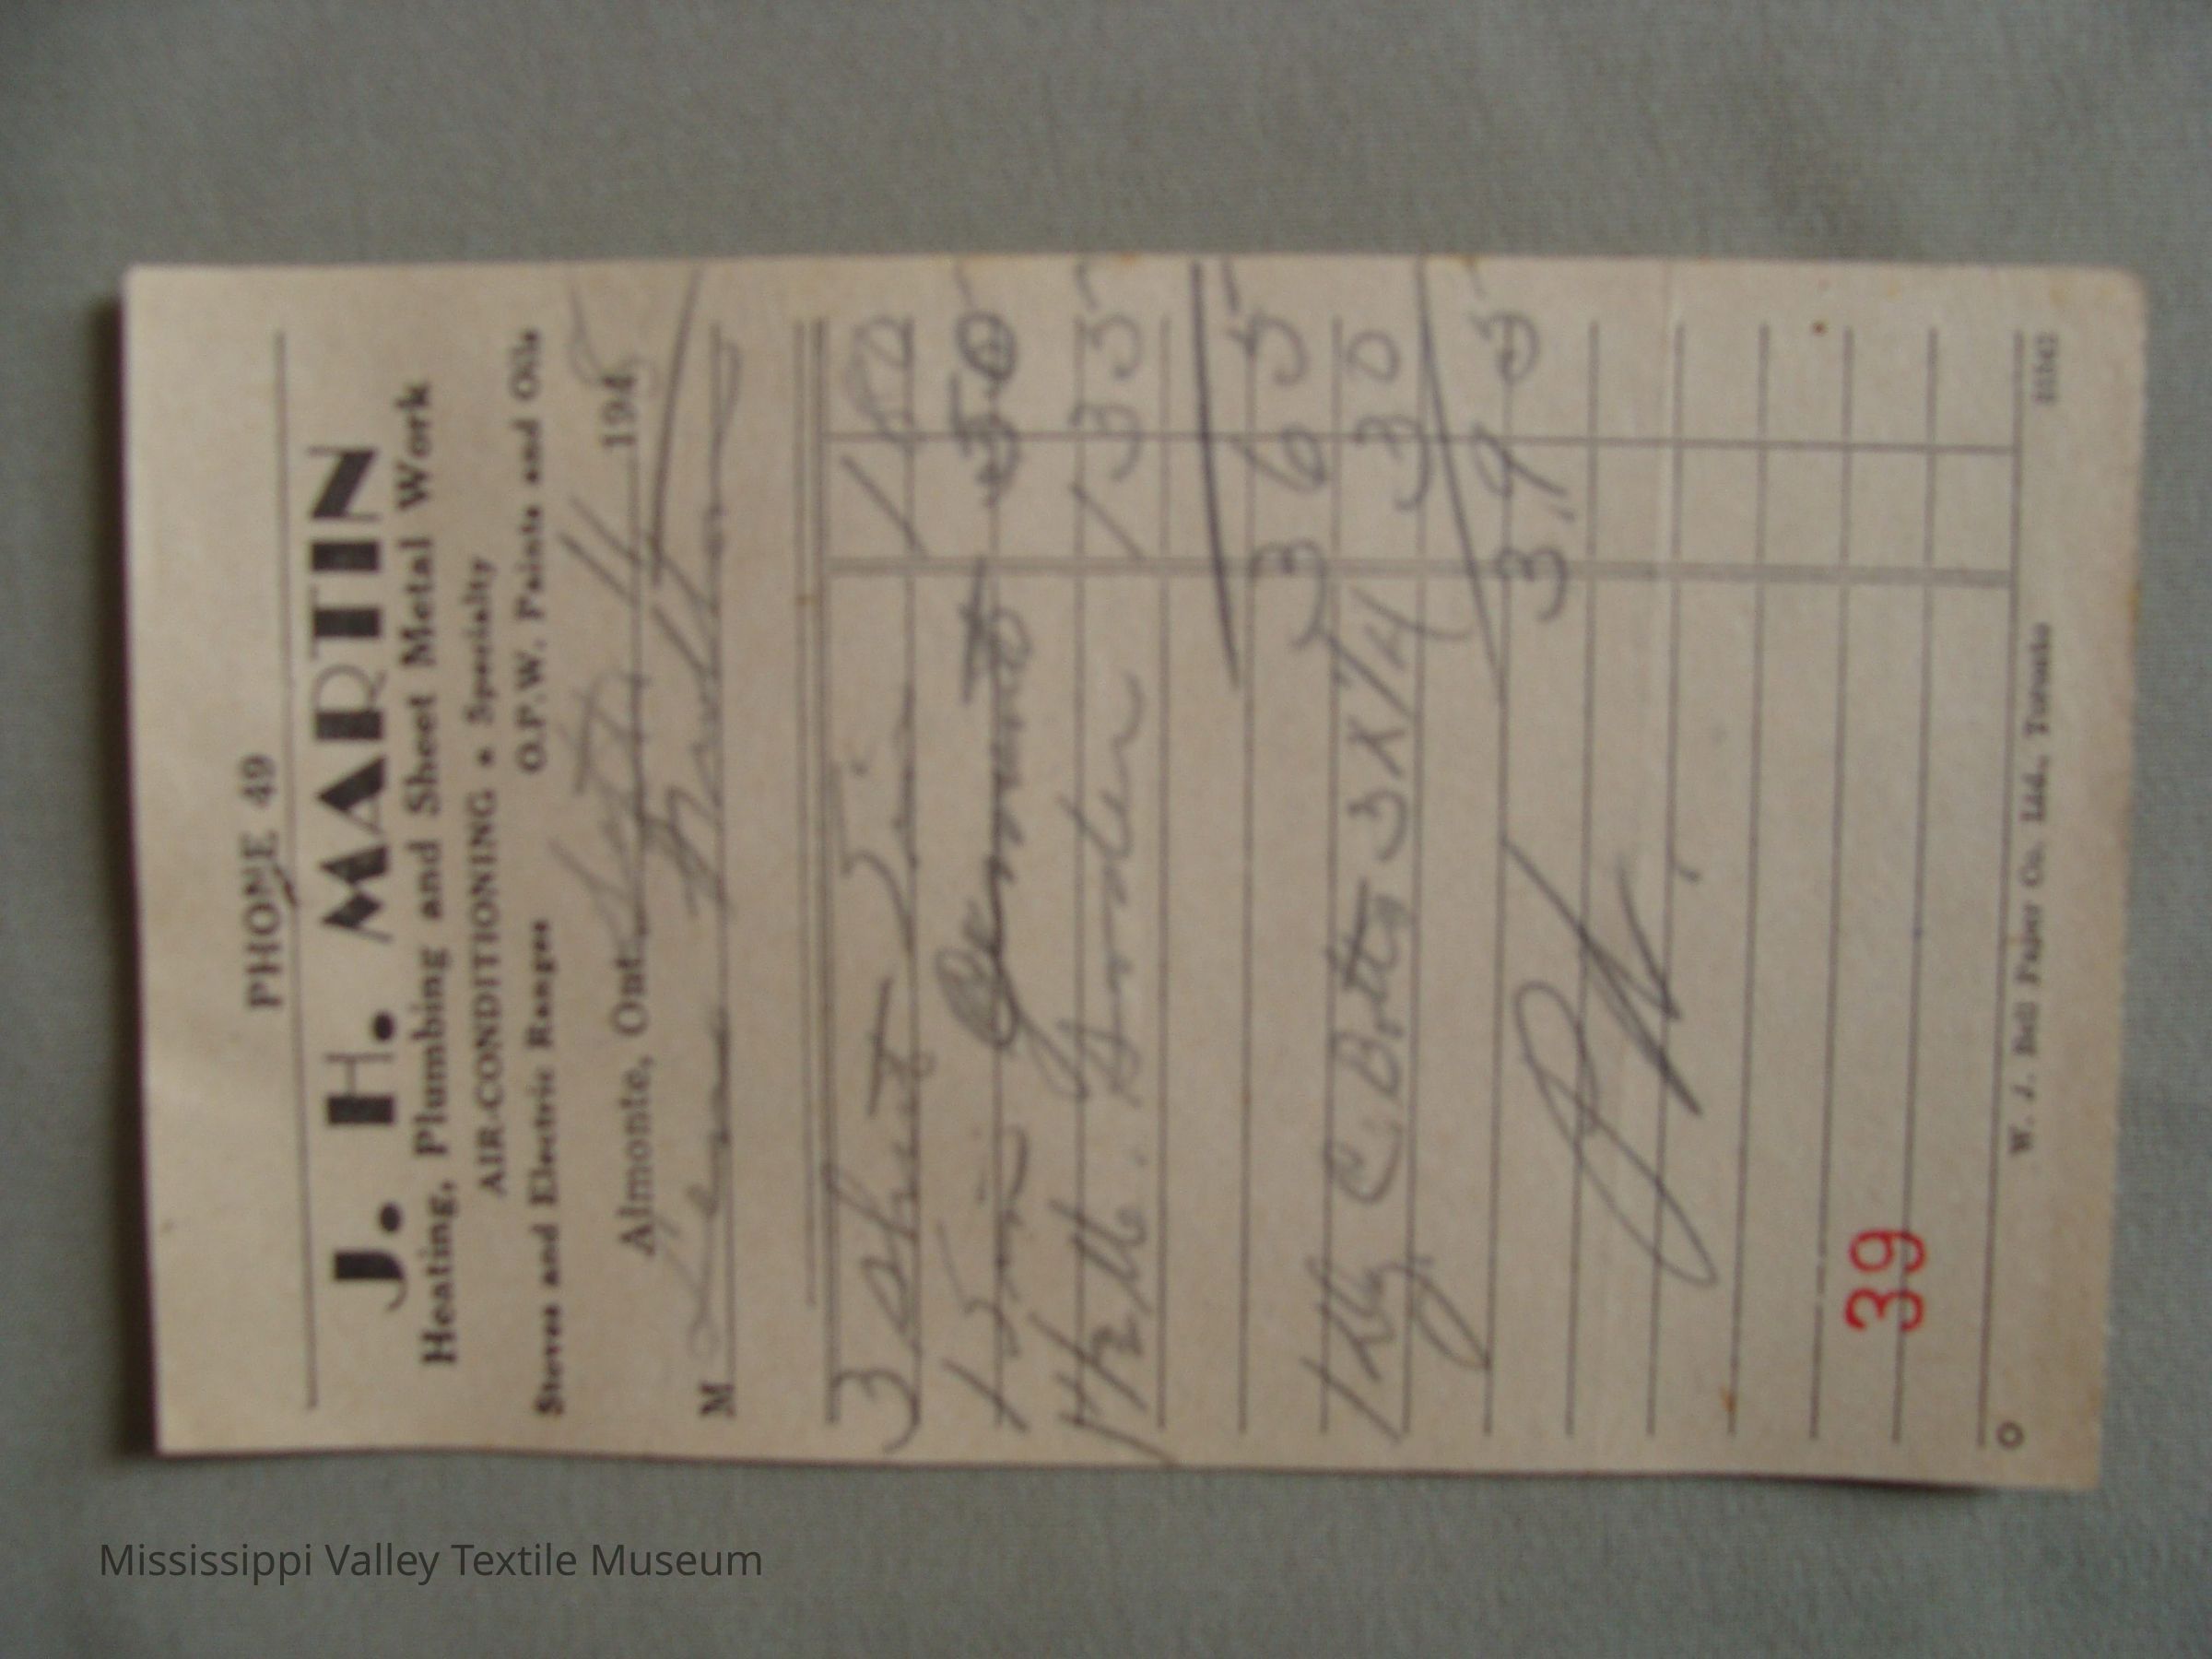 PHONE 49
J. H. MARTIN
Heating, Plumbing and Sheet Metal Work
AIR-CONDITIONING a Specialty
Stoves and Electric Ranges O.P.W. Paints and Oils
Almonte, Ont. Sept 11 1945
M
3 Sheet Tin 1 80
1 Tin Cement 50
4 1/2 lb. Solder 1 35
3 65
1 lb C. Bolts 3 X 1/4 30
3,95
39
W. J. Bell Paper Co. Ltd., Toronto
Mississippi Valley Textile Museum